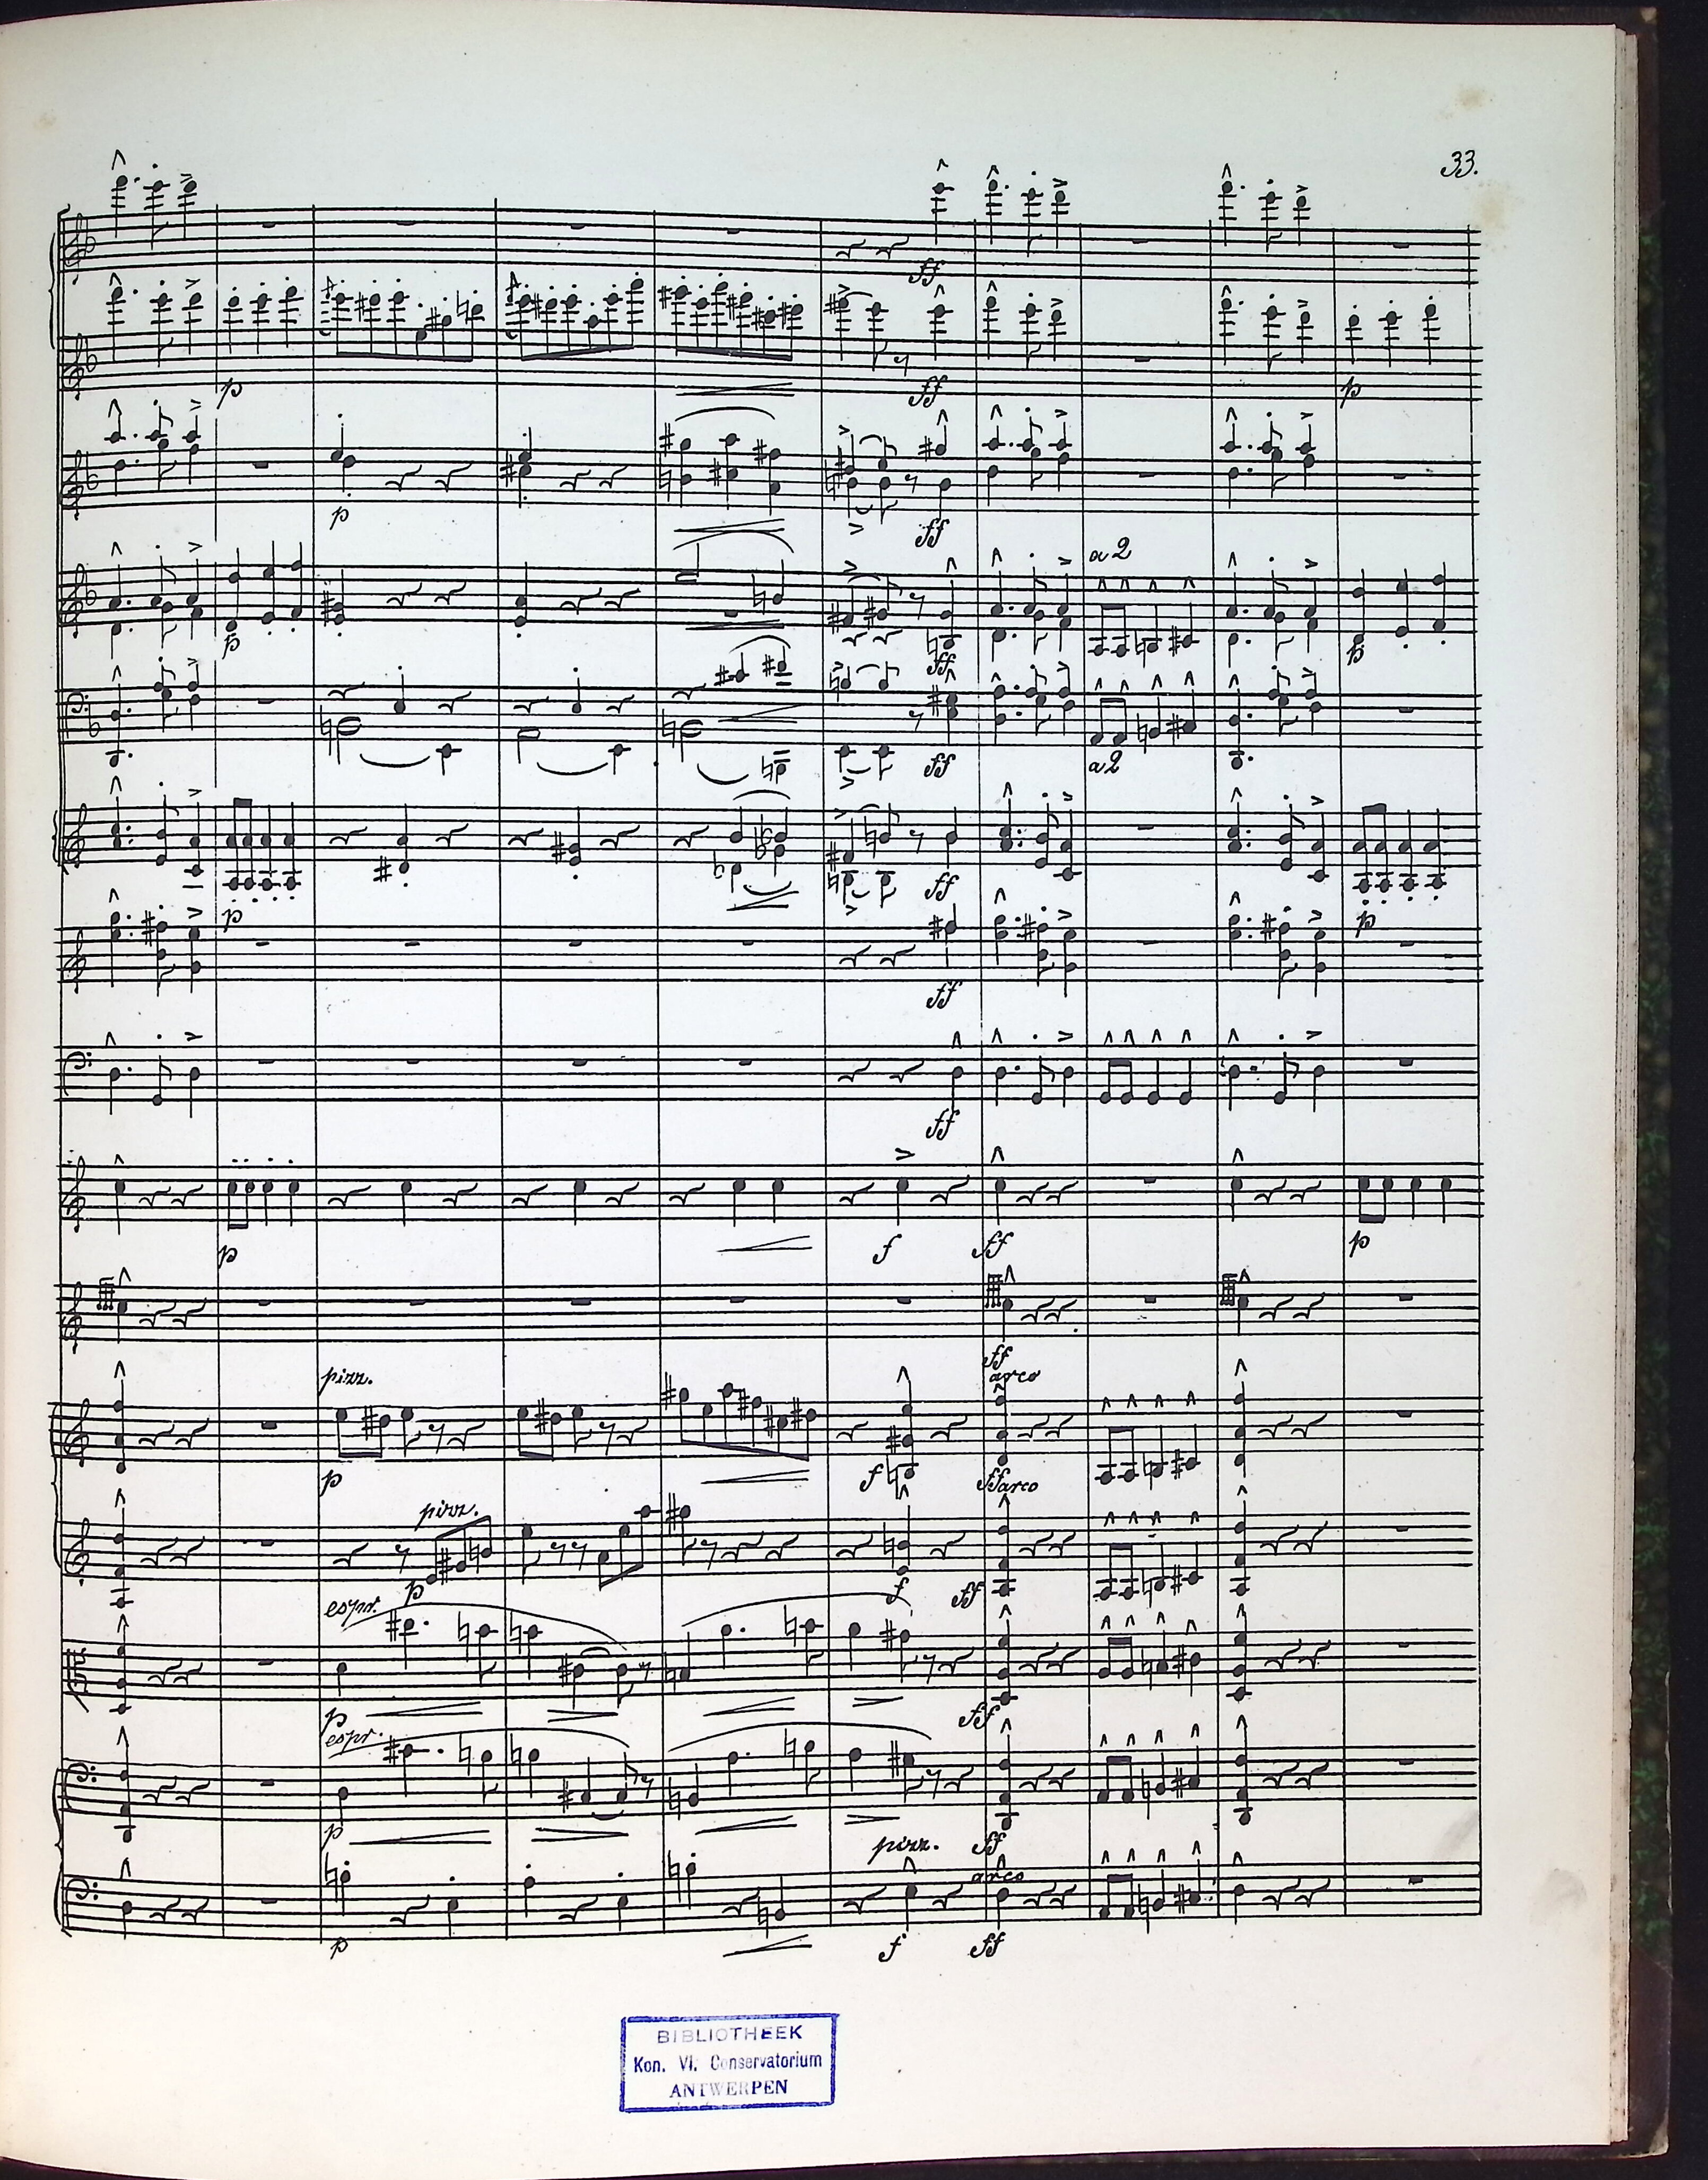 33.
ff
p
ff
p
p
ff
a 2
p
ff
p
ff
a2
p
ff
p
ff
ff
p
f
ff
p
ff
pizz.
arco
p
f
ff arco
pizz.
p
f
ff
espr.
p
ff
espr.
p
ff
pizz.
arco
p
f
ff
BIBLIOTHEEK
Kon. Vl. Conservatorium
ANTWERPEN